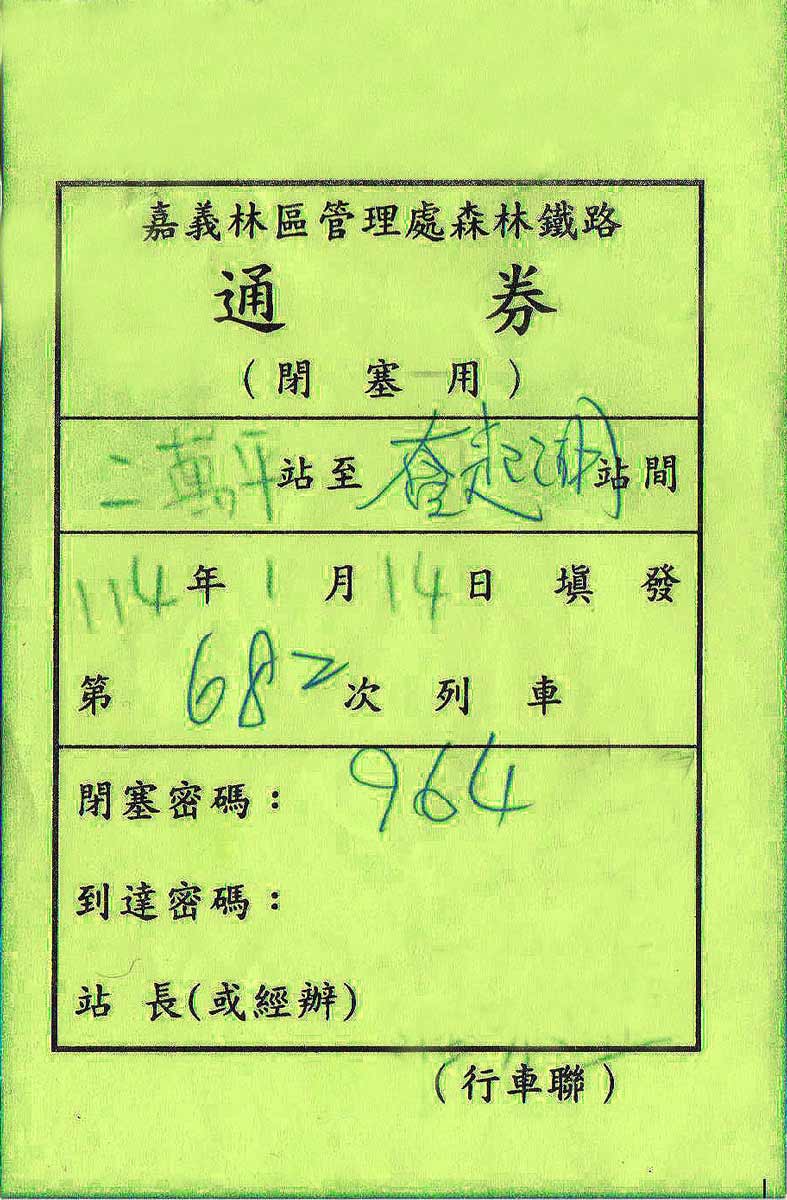 嘉義林區管理處森林鐵路
通 券
(閉塞用)
二萬平站至奮起湖站間
114年1月14日填發
第682次列車
閉塞密碼：964
到達密碼：
站 長(或經辦)
(行車聯)